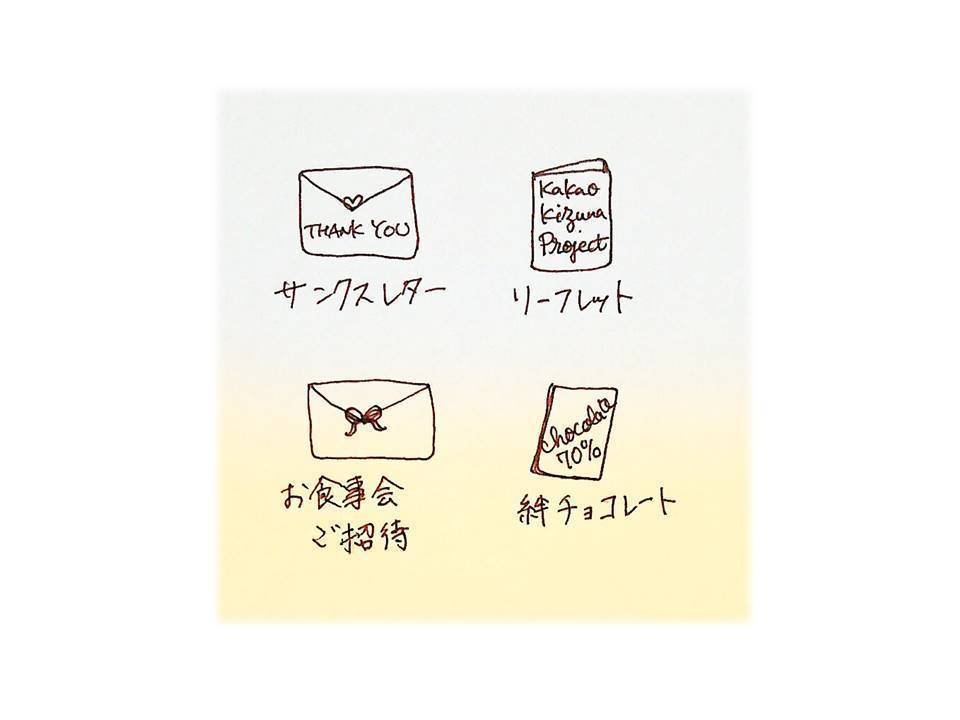 THANK YOU
サンクスレター
Kakao
Kizuna
Project
リーフレット
お食事会
ご招待
chocolate
70%
絆チョコレート